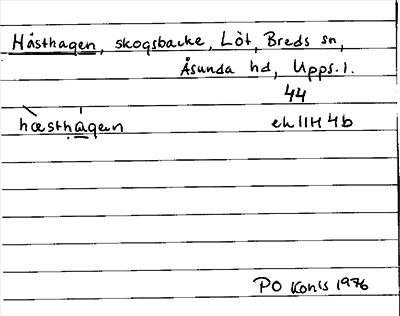 Hästhagen, skogsbacke, Löt, Breds sn,
Åsunda hd, Upps. l.
44
hæsthagan ek 11H 4b
PO Konls 1976